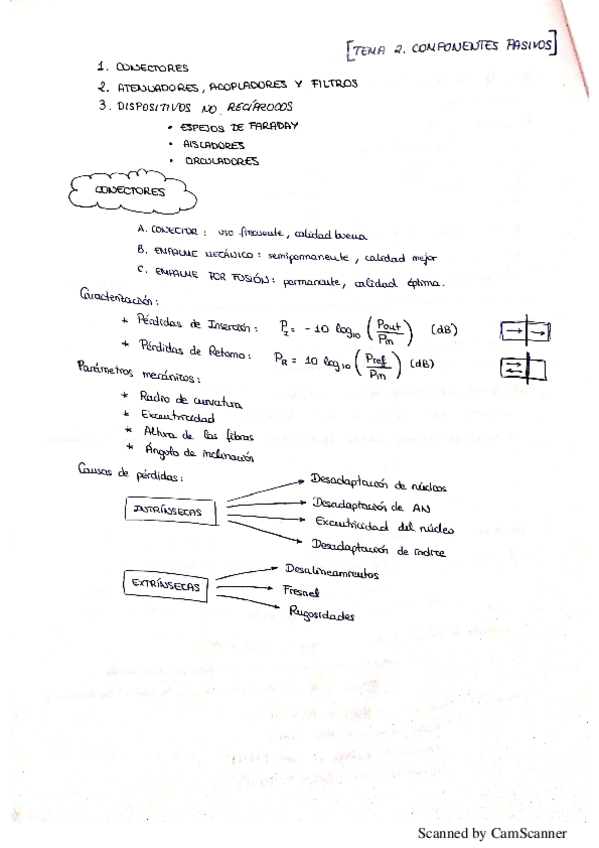 [TEMA 2. COMPONENTES PASIVOS]
1. CONECTORES
2. ATENUADORES, ACOPLADORES Y FILTROS
3. DISPOSITIVOS NO RECÍPROCOS
• ESPEJOS DE FARADAY
• AISLADORES
• CIRCULADORES
CONECTORES
A. CONECTOR: uso frecuente, calidad buena
B. EMPALME MECÁNICO: semipermanente, calidad mejor
C. EMPALME POR FUSIÓN: permanente, calidad óptima.
Caracterización:
* Pérdidas de Inserción: P_I = -10 log₁₀ (Pout/Pin) (dB)
* Pérdidas de Retorno: P_R = 10 log₁₀ (Pref/Pin) (dB)
Parámetros mecánicos:
* Radio de curvatura
* Excentricidad
* Altura de las fibras
* Ángulo de inclinación
Causas de pérdidas:
INTRÍNSECAS
Desadaptación de núcleos
Desadaptación de AN
Excentricidad del núcleo
Desadaptación de índice
EXTRÍNSECAS
Desalineamientos
Fresnel
Rugosidades
Scanned by CamScanner